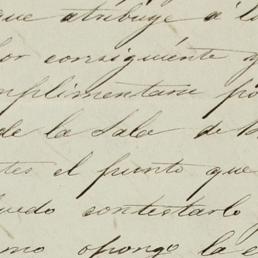 que atribuye á la
por consiguiente q
mplimentara po
de la Sala de
tes el punto que
uedo contestarlo
mo opongo la e